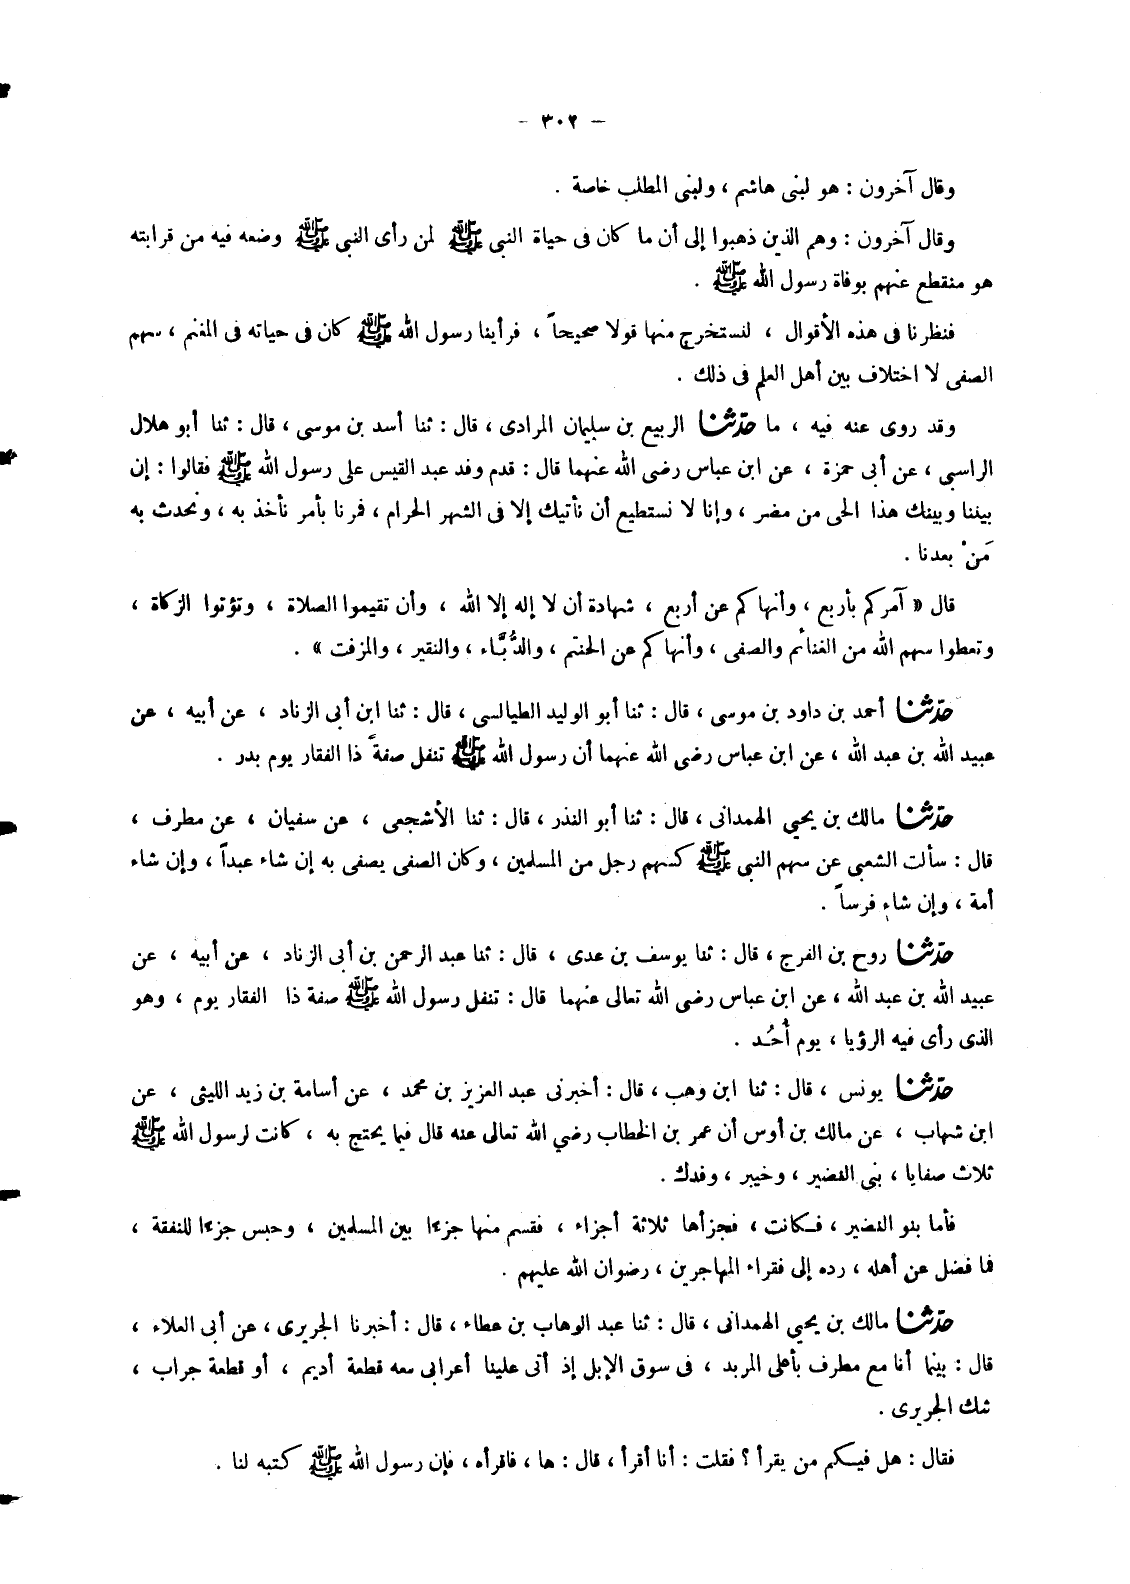 – ٣٠٢ –
وقال آخرون : هو لبنى هاشم ، ولبنى المطلب خاصة .
وقال آخرون : وهم الذين ذهبوا إلى أن ما كان فى حياة النبى ﷺ لمن رأى النبى ﷺ وضعه فيه من قرابته
هو منقطع عنهم بوفاة رسول الله ﷺ .
فنظرنا فى هذه الأقوال ، لنستخرج منها قولا صحيحاً ، فرأينا رسول الله ﷺ كان فى حياته فى المغنم ، سهم
الصفى لا اختلاف بين أهل العلم فى ذلك .
وقد روى عنه فيه ، ما حدّثنا الربيع بن سليمان المرادى ، قال : ثنا أسد بن موسى ، قال : ثنا أبو هلال
الراسبى ، عن أبى حمزة ، عن ابن عباس رضى الله عنهما قال : قدم وفد عبد القيس على رسول الله ﷺ فقالوا : إن
بيننا وبينك هذا الحى من مضر ، وإنا لا نستطيع أن نأتيك إلا فى الشهر الحرام ، فمرنا بأمر نأخذ به ، ونحدث به
مَنْ بعدنا .
قال « آمركم بأربع ، وأنهاكم عن أربع ، شهادة أن لا إله إلا الله ، وأن تقيموا الصلاة ، وتؤتوا الزكاة ،
وتعطوا سهم الله من الغنائم والصفى ، وأنهاكم عن الحنتم ، والدُّبَّاء ، والنقير ، والمزفت » .
حدّثنا أحمد بن داود بن موسى ، قال : ثنا أبو الوليد الطيالسى ، قال : ثنا ابن أبى الزناد ، عن أبيه ، عن
عبيد الله بن عبد الله ، عن ابن عباس رضى الله عنهما أن رسول الله ﷺ تنفل صفةً ذا الفقار يوم بدر .
حدّثنا مالك بن يحيي الهمدانى ، قال : ثنا أبو النذر ، قال : ثنا الأشجعى ، عن سفيان ، عن مطرف ،
قال : سألت الشعبى عن سهم النبى ﷺ كسهم رجل من المسلمين ، وكان الصفى يصفى به إن شاء عبداً ، وإن شاء
أمة ، وإن شاء فرساً .
حدّثنا روح بن الفرج ، قال : ثنا يوسف بن عدى ، قال : ثنا عبد الرحمن بن أبى الزناد ، عن أبيه ، عن
عبيد الله بن عبد الله ، عن ابن عباس رضى الله تعالى عنهما قال : تنفل رسول الله ﷺ صفة ذا الفقار يوم ، وهو
الذى رأى فيه الرؤيا ، يوم أُحُد .
حدّثنا يونس ، قال : ثنا ابن وهب ، قال : أخبرنى عبد العزيز بن محمد ، عن أسامة بن زيد الليثى ، عن
ابن شهاب ، عن مالك بن أوس أن عمر بن الخطاب رضي الله تعالى عنه قال فيما يحتج به ، كانت لرسول الله ﷺ
ثلاث صفايا ، بنى النضير ، وخيبر ، وفدك .
فأما بنو النضير ، فكانت ، فجزأها ثلاثة أجزاء ، فقسم منها جزءا بين المسلمين ، وحبس جزءا للنفقة ،
فما فضل عن أهله ، رده إلى فقراء المهاجرين ، رضوان الله عليهم .
حدّثنا مالك بن يحيي الهمدانى ، قال : ثنا عبد الوهاب بن عطاء ، قال : أخبرنا الجريرى ، عن أبى العلاء ،
قال : بينما أنا مع مطرف بأعلى المربد ، فى سوق الإبل إذ أتى علينا أعرابى معه قطعة أديم ، أو قطعة جراب ،
شك الجريرى .
فقال : هل فيكم من يقرأ ؟ فقلت : أنا أقرأ ، قال : ها ، فاقرأه ، فإن رسول الله ﷺ كتبه لنا .